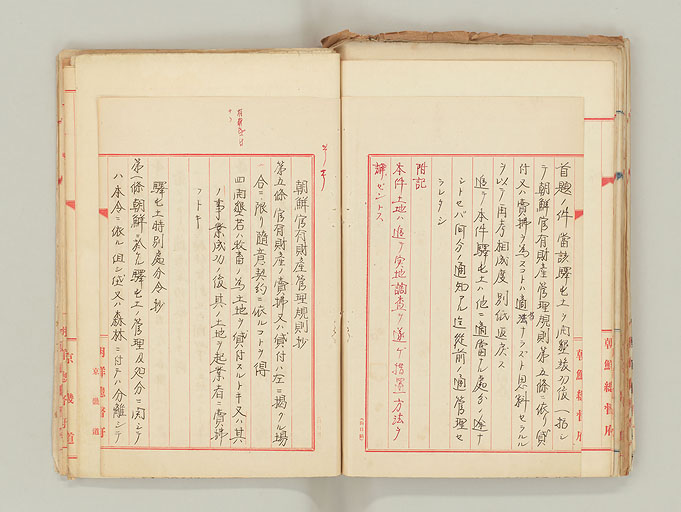 首題ノ件當該驛屯土ヲ開墾竣功後一括シ
テ朝鮮官有財産管理規則第五條ニ依リ貸
付又ハ賣拂ヲ為スコトハ適法ナラズト思料セラルル
ヲ以テ御了知相成度別紙返戻ス
追テ本件驛屯土ハ他ニ適當ナル處分ノ途ナ
シトセバ何分ノ通知アル迄從前ノ通管理セ
ラレタシ
附記
本件土地ハ追テ実地調査ヲ遂ケ措置方法ヲ
講ゼントス
朝鮮總督府
朝鮮官有財産管理規則抄
第五條 官有財産ノ賣拂又ハ貸付ハ左ニ揭クル場
合ニ限リ隨意契約ニ依ルコトヲ得
四 開墾若ハ牧畜ノ為土地ヲ貸付スルトキ又ハ其
ノ事業成功ノ後其ノ土地ヲ起業者ニ賣拂
フトキ
驛屯土特別處分令抄
第一條 朝鮮ニ於ケル驛屯土ノ管理及処分ニ関シテ
ハ本令ニ依ル但シ垈又ハ森林ニ付テハ分離シテ
朝鮮總督府
京畿道